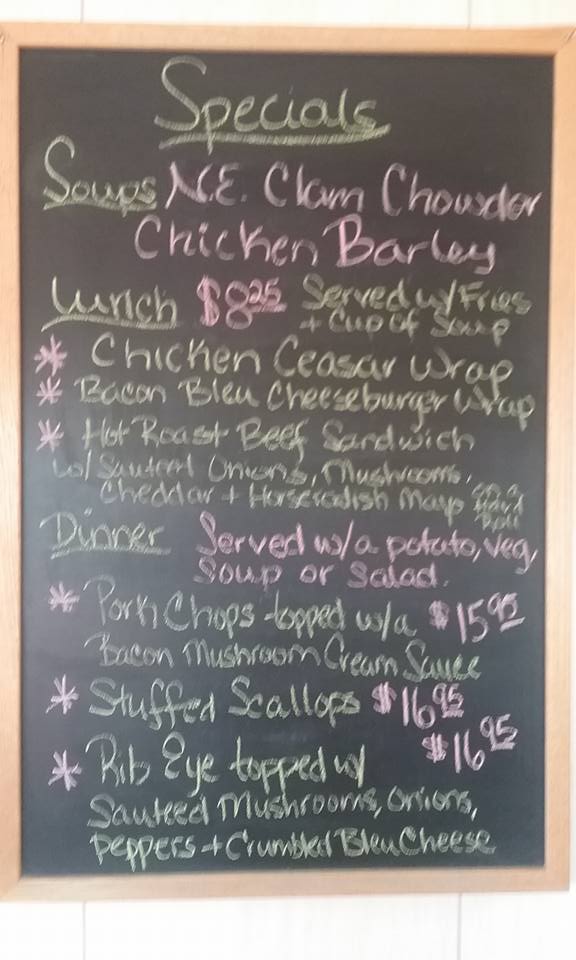 Specials
Soups N.E. Clam Chowder
Chicken Barley
Lunch $8.25 Served w/Fries
+ Cup Of Soup
* Chicken Ceasar Wrap
* Bacon Bleu Cheeseburger Wrap
* Hot Roast Beef Sandwich
w/ Sauteed Onions, Mushrooms,
Cheddar + Horseradish Mayo on a Hard Roll
Dinner Served w/a potato, veg,
Soup or Salad.
* Pork Chops topped w/a $15.95
Bacon Mushroom Cream Sauce
* Stuffed Scallops $16.95
* Rib Eye topped w/ $16.95
Sauteed Mushrooms, Onions,
Peppers + Crumbled Bleu Cheese